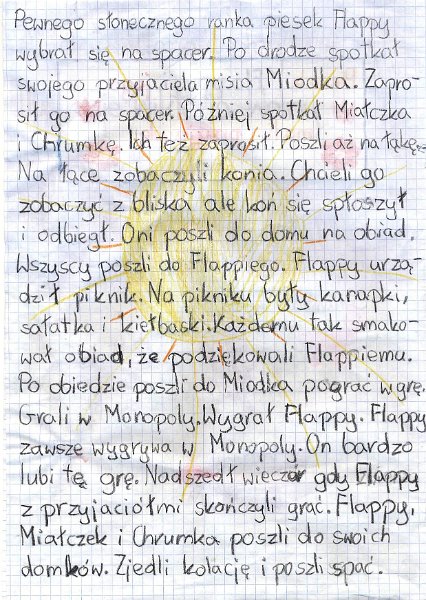 Pewnego słonecznego ranka piesek Flappy
wybrał się na spacer. Po drodze spotkał
swojego przyjaciela misia Miodka. Zapro-
sił go na spacer. Później spotkał Miałczka
i Chrumkę. Ich też zaprosił. Poszli aż na łąkę.
Na łące zobaczyli konia. Chcieli go
zobaczyć z bliska ale koń się spłoszył
i odbiegł. Oni poszli do domu na obiad.
Wszyscy poszli do Flappiego. Flappy urzą-
dził piknik. Na pikniku były kanapki,
sałatka i kiełbaski. Każdemu tak smako-
wał obiad, że podziękowali Flappiemu.
Po obiedzie poszli do Miodka pograć w grę.
Grali w Monopoly. Wygrał Flappy. Flappy
zawsze wygrywa w Monopoly. On bardzo
lubi tę grę. Nadszedł wieczór gdy Flappy
z przyjaciółmi skończyli grać. Flappy,
Miałczek i Chrumka poszli do swoich
domków. Zjedli kolację i poszli spać.